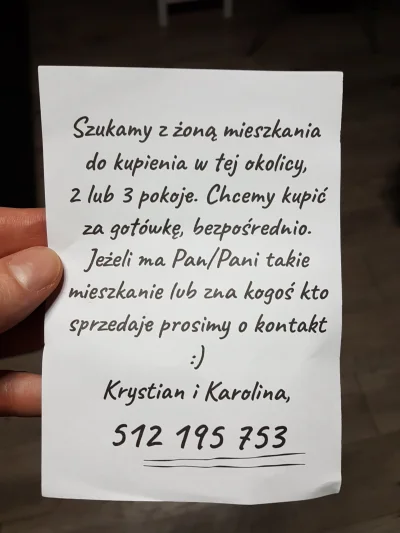 Szukamy z żoną mieszkania
do kupienia w tej okolicy,
2 lub 3 pokoje. Chcemy kupić
za gotówkę, bezpośrednio.
Jeżeli ma Pan/Pani takie
mieszkanie lub zna kogoś kto
sprzedaje prosimy o kontakt
:)
Krystian i Karolina,
512 195 753